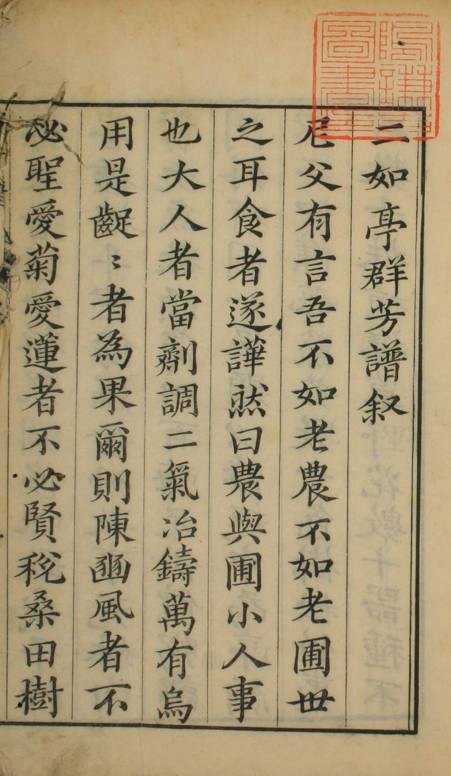 二如亭群芳譜叙
尼父有言吾不如老農不如老圃世
之耳食者遂譁然曰農與圃小人事
也大人者當劑調二氣冶鑄萬有烏
用是齪〻者為果爾則陳豳風者不
必聖愛菊愛蓮者不必賢稅桑田樹